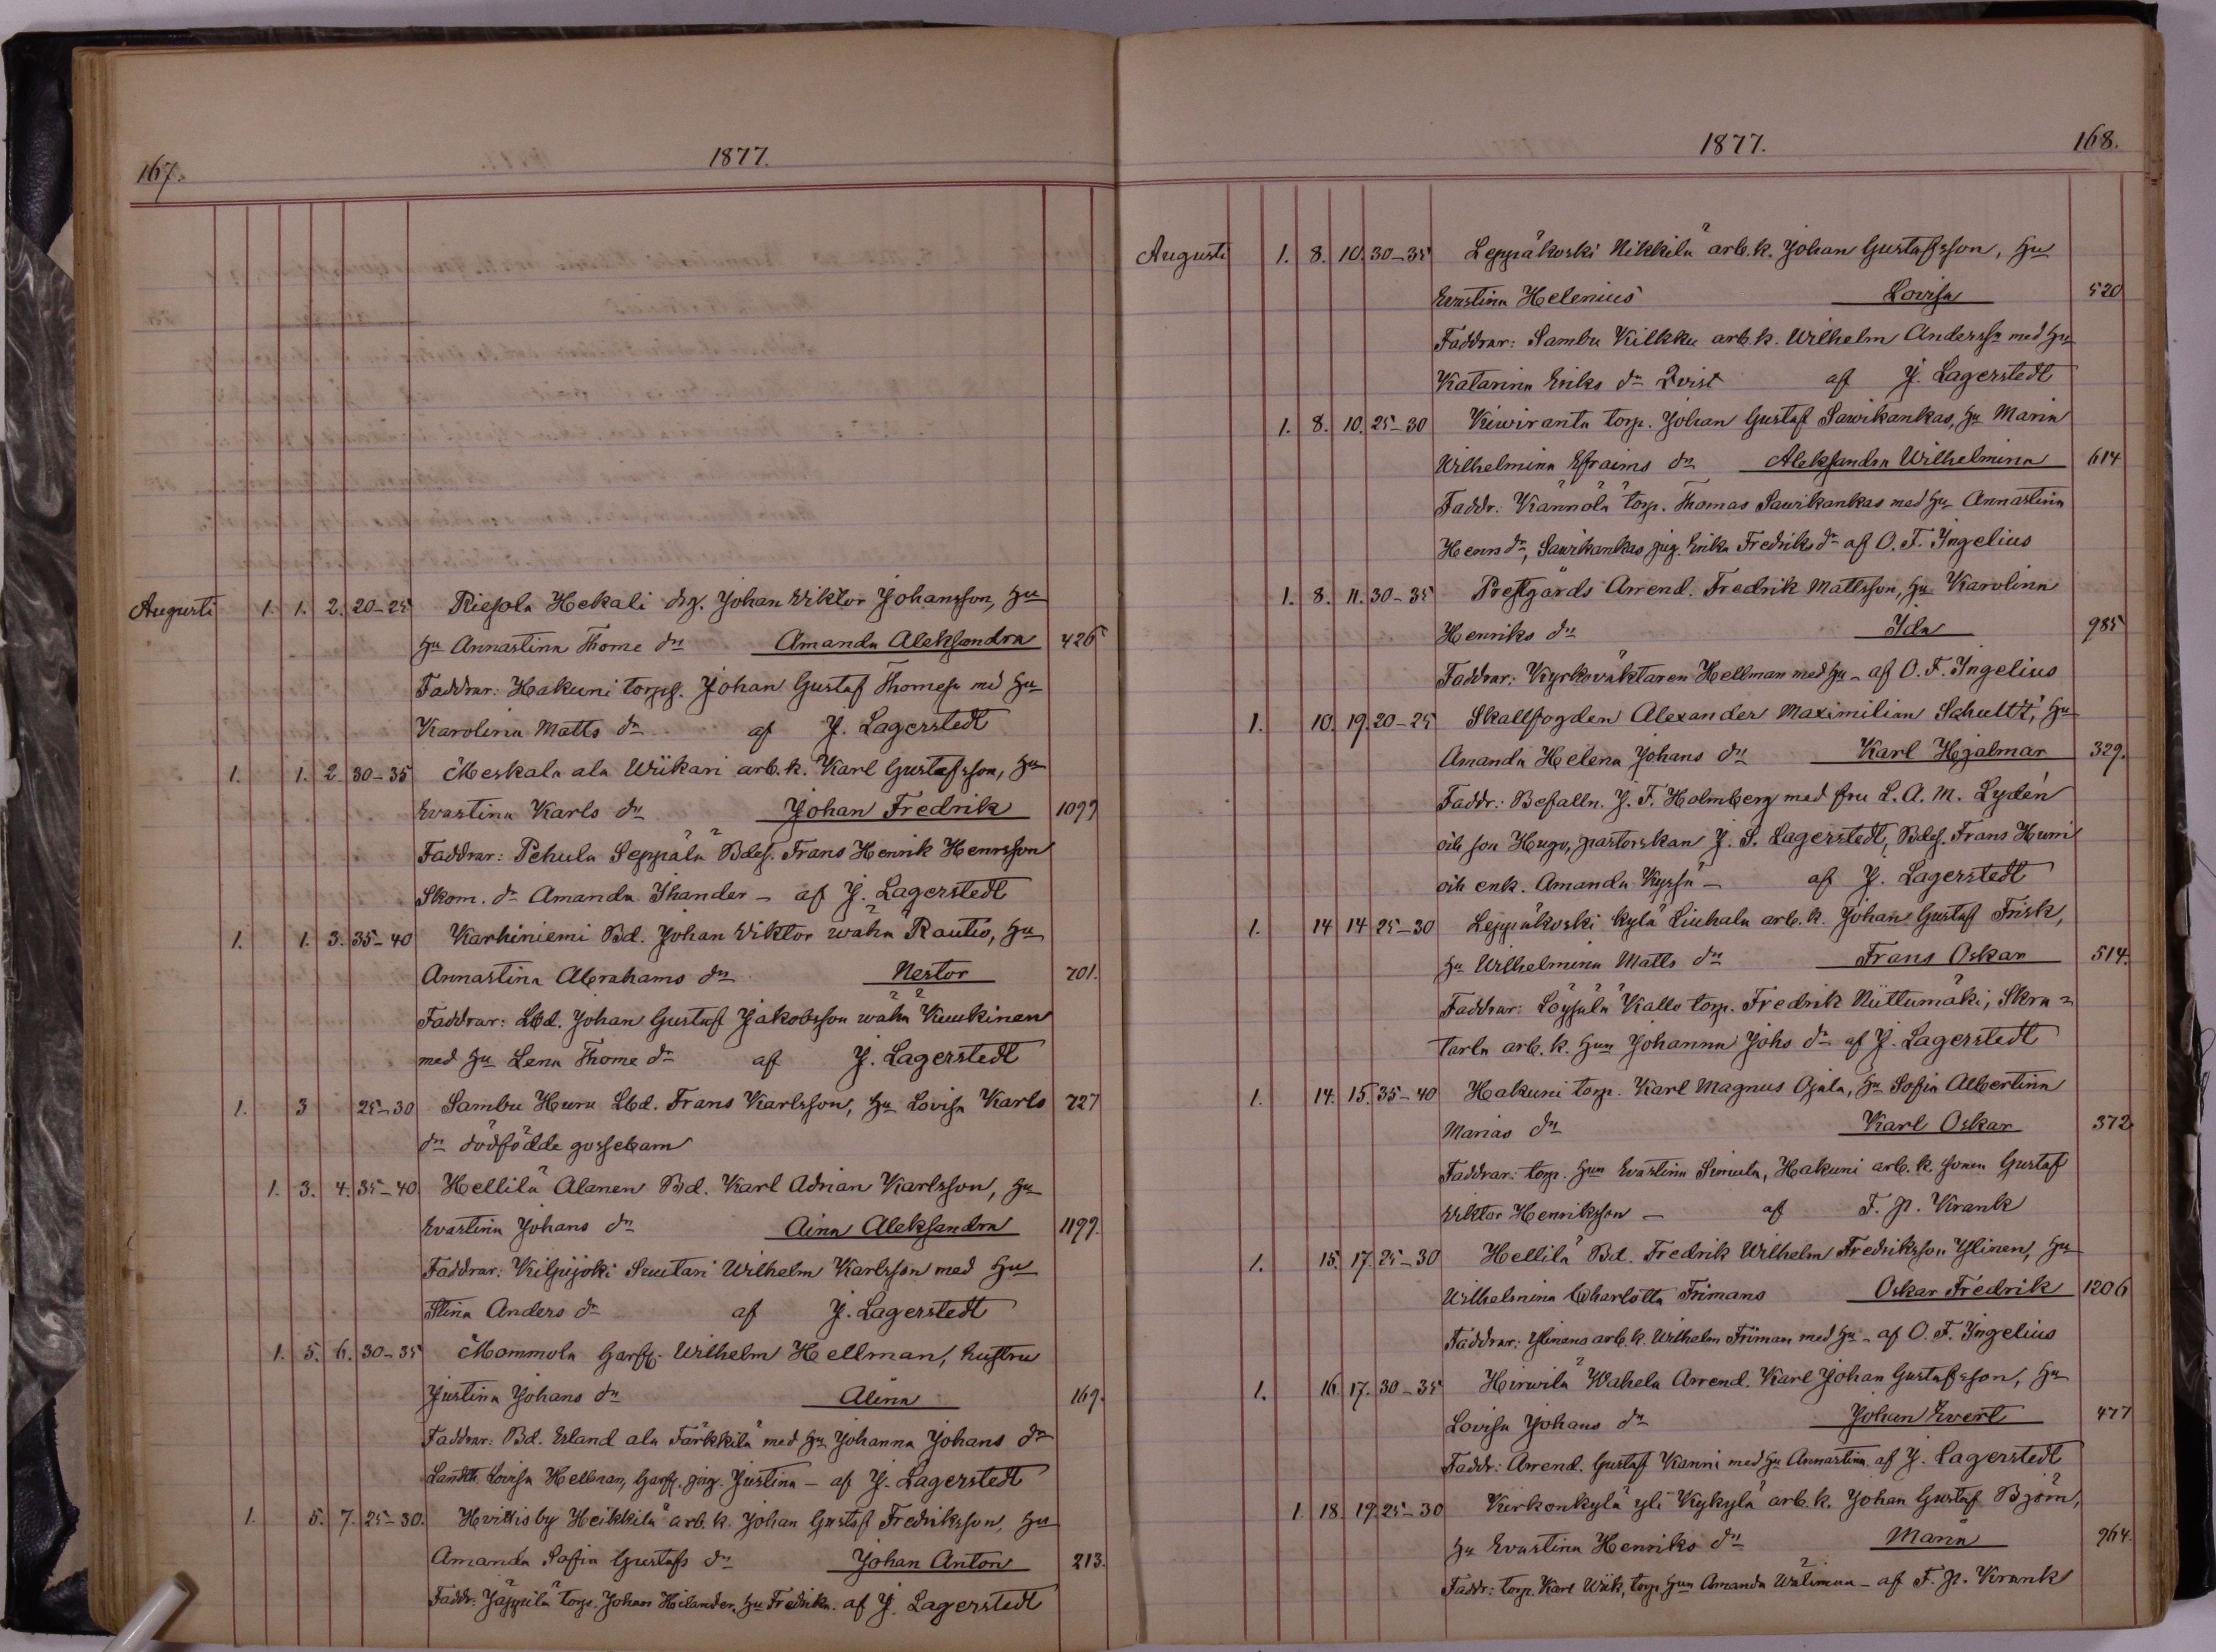 167.
1877.
Augusti 1. 1. 2. 20-25 Riesola Hekali drg. Johan Viktor Johansson, hu
hu Annastina Thome dr Amanda Aleksandra 426
Faddrar: Hakuni torpf. Johan Gustaf Thomess med hu
Karolina Matts dr af J. Lagerstedt
1. 1. 2. 30-35 Meskala ala Wiikari arb. k. Karl Gustafsson, hu
Evastina Karls dr Johan Fredrik 1099
Faddrar: Pehula Seppälä Bdes. Frans Henrik Henrsson
Skom. dr Amanda Ihander - af J. Lagerstedt
1. 1. 3. 35-40 Karhiniemi Bd. Johan Viktor wähä Rautio, hu
Annastina Abrahams dr Nestor 701.
Faddrar: Lbd. Johan Gustaf Jakobsson wähä Kuukinen
med hu Lena Thome dr af J. Lagerstedt
1. 3 25-30 Sambu Huru Lbd. Frans Karlsson, hu Lovisa Karls 727
dr dödfödde gossebarn
1. 3. 4. 35-40 Hellilä Alanen Bd. Karl Adrian Karlsson, hu
Evastina Johans dr Aina Aleksandra 1199.
Faddrar: Kilpijoki Suutari Wilhelm Karlsson med hu
Stina Anders dr af J. Lagerstedt
1. 5. 6. 30-35 Mommola Garff. Wilhelm Hellman, hustru
Justina Johans dr Alina 169.
Faddrar: Bd. Erland ala Färkkilä med hu Johanna Johans dr
Landtb. Lovisa Hellman, Garff. pig. Justina - af J. Lagerstedt
1. 5. 7. 25-30. Hvittis by Heikkilä arb. k. Johan Gustaf Fredriksson, hu
Amanda Sofia Gustafs dr Johan Anton 213.
Faddr: Jäppilä torp. Johan Hilander, hu Fredrika. af J. Lagerstedt
1877.
168.
Augusti 1. 8. 10. 30-35 Leppäkoski Nikkilä arb. k. Johan Gustafsson, hu
Evastina Helenius Lovisa 520
Faddrar: Sambu Kilkku arb. k. Wilhelm Anderssn med hu
Katarina Eriks dr Qvist af J. Lagerstedt
1. 8. 10. 25-30 Kiviranta torp. Johan Gustaf Sawikankas, hu Maria
Wilhelmina Efraims dr Aleksandra Wilhelmina 614
Faddr: Kännölä torp. Thomas Sawikankas med hu Annastina
Henrs dr, Sawikankas pig. Erika Fredriks dr af O. F. Ingelius
1. 8. 11. 30-35 Prestgårds Arrend. Fredrik Mattsson, hu Karolina
Henriks dr Ida 985
Faddrar: Kyrkoväktaren Hellman med hu - af O. F. Ingelius
1. 10. 19. 20-25 Skallfogden Alexander Maximilian Schultt, hu
Amanda Helena Johans dr Karl Hjalmar 329.
Faddr: Befalln. J. F. Holmberg med fru L. A. M. Lydén
och son Hugo, pastorskan J. S. Lagerstedt, Bdes. Frans Humi
och enk. Amanda Kyssä - af J. Lagerstedt
1. 14 14 25-30 Leppäkoski kylä Liuhala arb. k. Johan Gustaf Frisk,
hu Wilhelmina Matts dr Frans Oskar 514.
Faddrar: Löysälä Kallo torp. Fredrik Niittumäki, Skra=
tarla arb. k. hun Johanna Johs dr af J. Lagerstedt
1. 14. 15. 35-40 Hakuni torp. Karl Magnus Ojala, hu Sofia Albertina
Marias dr Karl Oskar 372
Faddrar: torp. hun Evastina Simula, Hakuni arb. k. sonen Gustaf
Viktor Henriksson - af F. P. Krank
1. 15. 17. 25-30 Hellilä Bd. Fredrik Wilhelm Fredriksson Ylinen, hu
Wilhelmina Charlotta Frimans Oskar Fredrik 1206
Faddrar: Ylinens arb. k. Wilhelm Friman med hu - af O. F. Ingelius
1. 16. 17. 30-35 Hirwilä Wahela Arrend. Karl Johan Gustafsson, hu
Lovisa Johans dr Johan Evert 477
Faddr: Arrend. Gustaf Kanni med hu Annastina af J. Lagerstedt
1. 18. 19. 25-30 Kirkonkylä yli Kykylä arb. k. Johan Gustaf Björn,
hu Evastina Henriks dr Maria 964.
Faddr: torp. Karl Wiik, torp. hun Amanda Wälimaa - af F. P. Krank